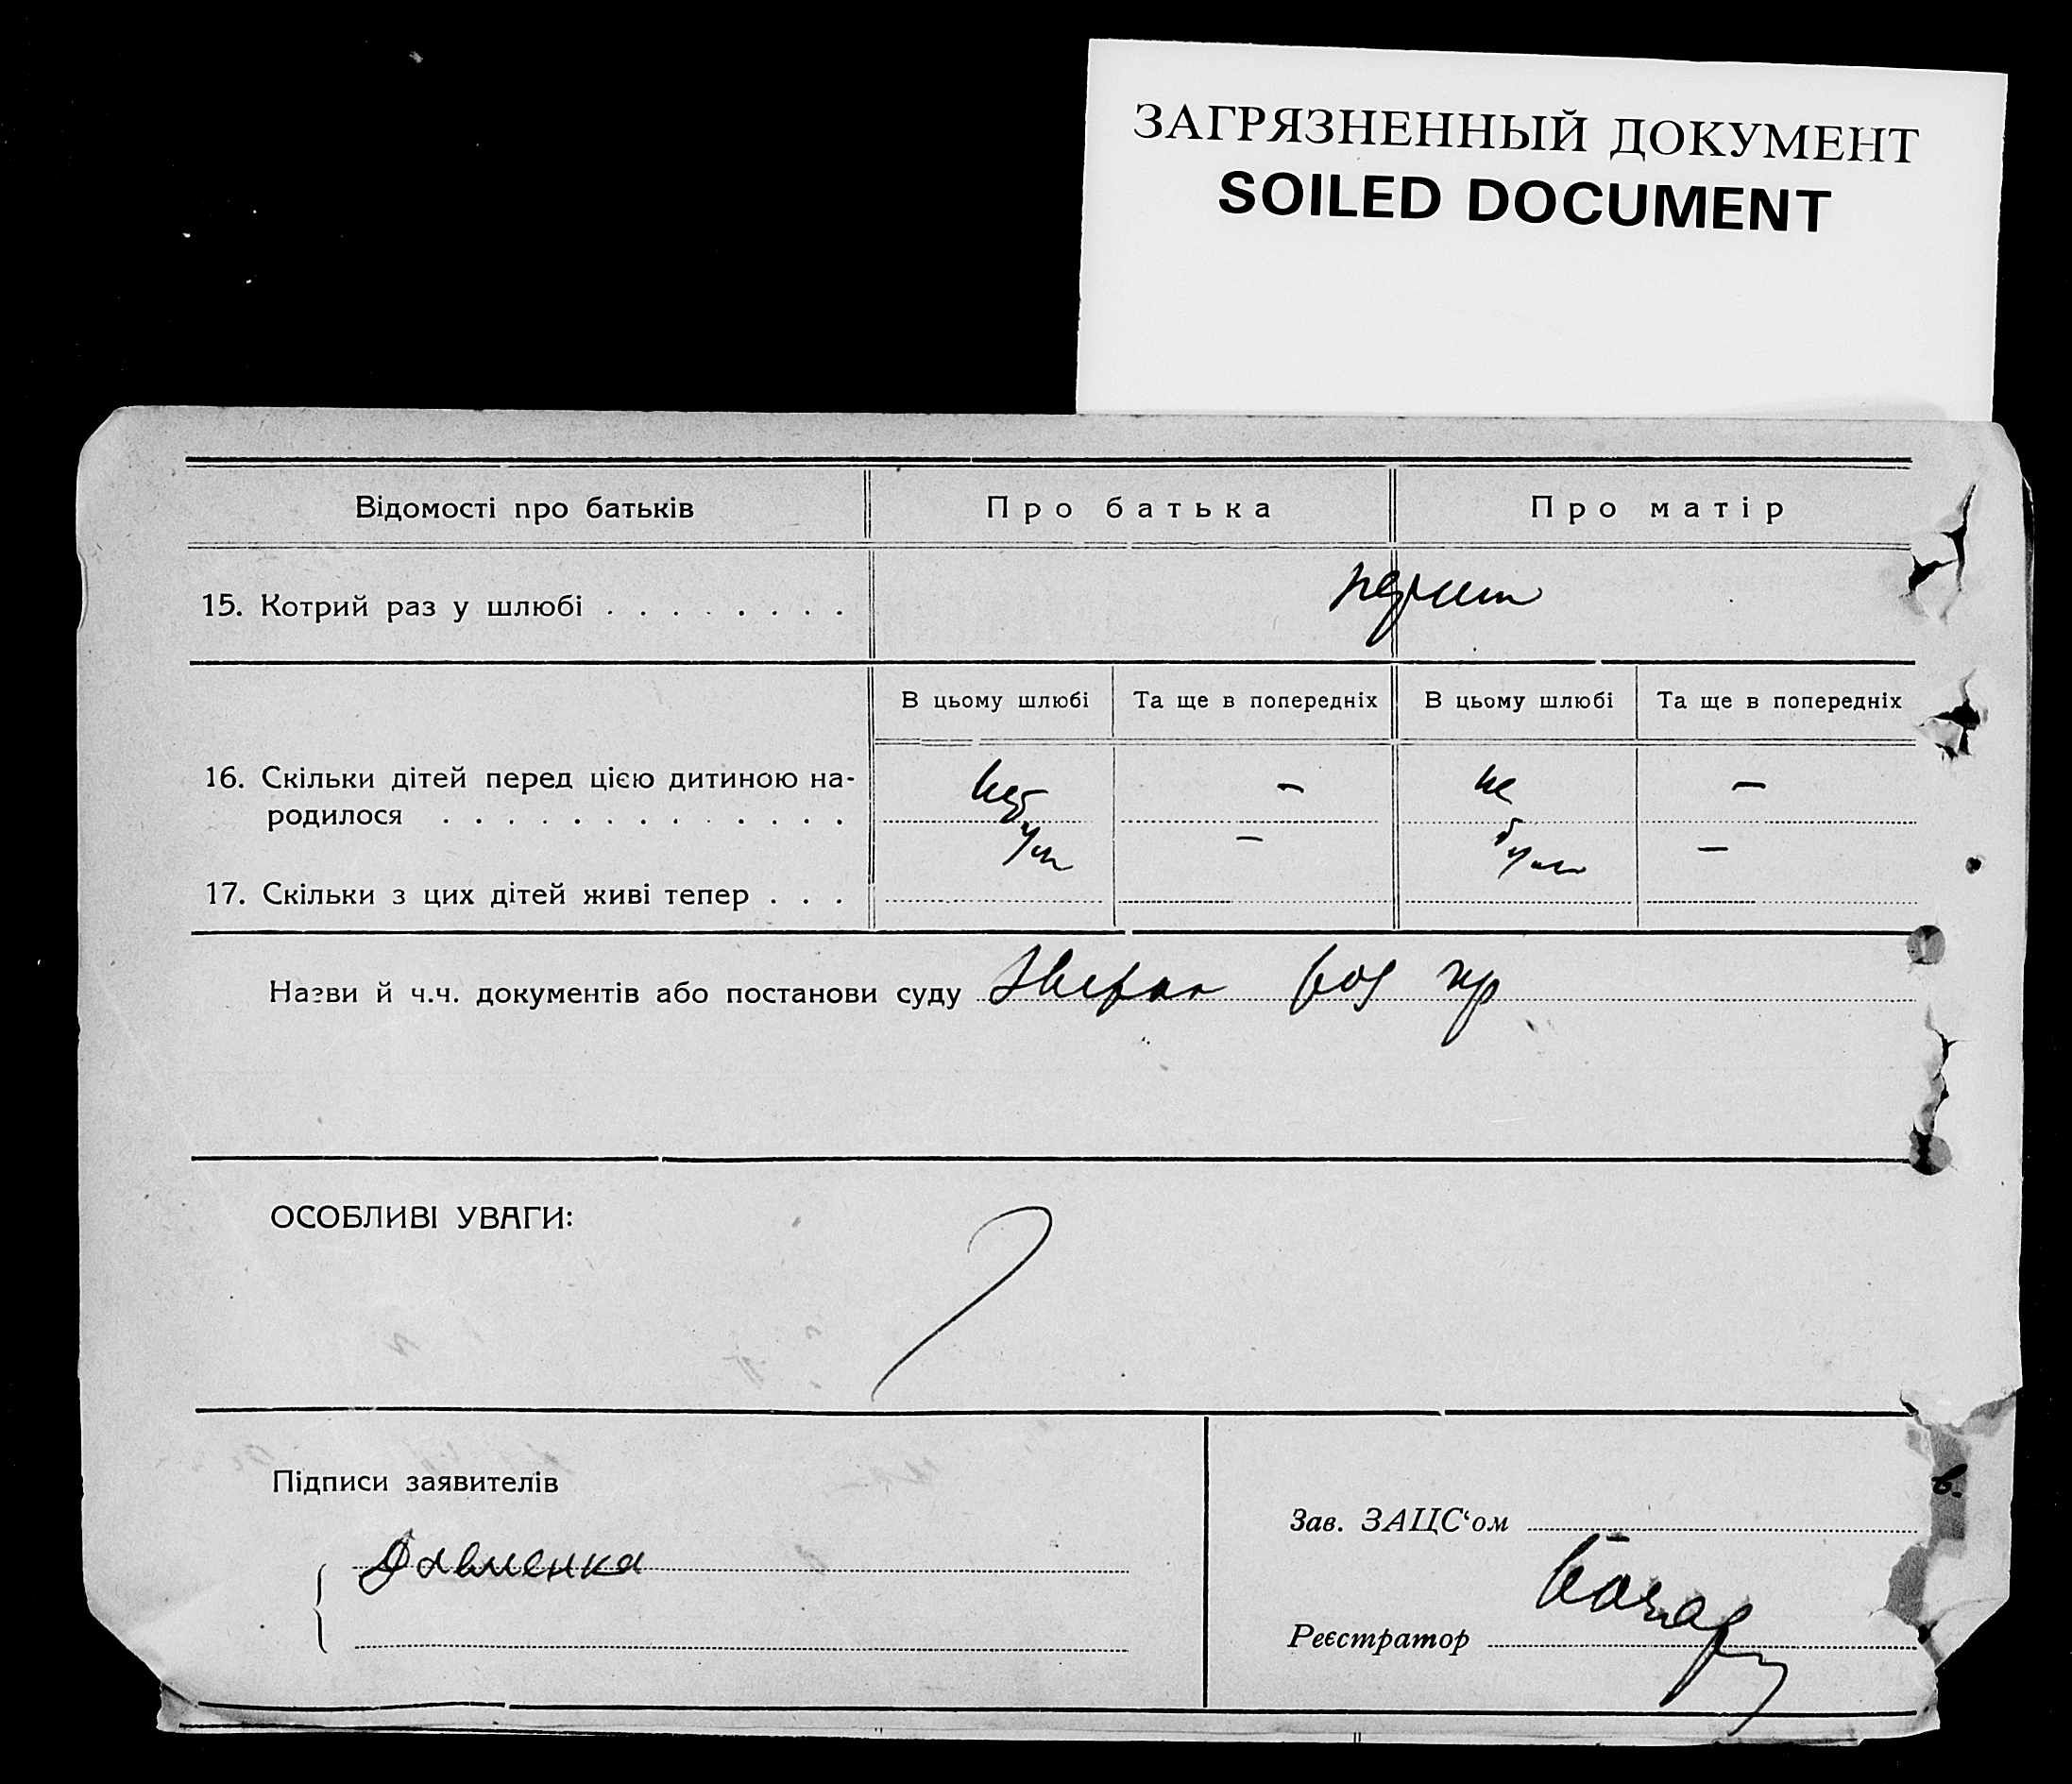 ЗАГРЯЗНЕННЫЙ ДОКУМЕНТ
SOILED DOCUMENT
Відомості про батьків
Про батька
Про матір
15. Котрий раз у шлюбі . . . . . . . .
В цьому шлюбі
Та ще в попередніх
В цьому шлюбі
Та ще в попередніх
16. Скільки дітей перед цією дитиною на-
не
родилося . . . . . . . . . . . . .
17. Скільки з цих дітей живі тепер . . .
Назви й ч.ч. документів або постанови суду
ОСОБЛИВІ УВАГИ:
Підписи заявителів
Зав. ЗАЦС‘ом
Реєстратор